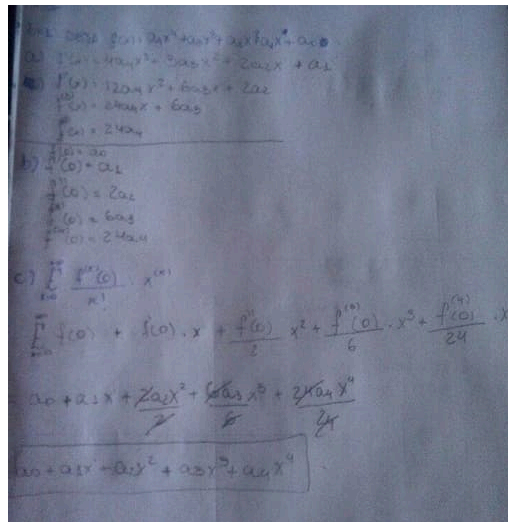 f(x) = a₄x⁴ + a₃x³ + a₂x² + a₁x + a₀
a) f'(x) = 4a₄x³ + 3a₃x² + 2a₂x + a₁
f''(x) = 12a₄x² + 6a₃x + 2a₂
f'''(x) = 24a₄x + 6a₃
(x) = 24a₄
b) f(0) = a₀
f'(0) = a₁
(0) = 2a₂
(0) = 6a₃
(0) = 24a₄
c) Σ f⁽ˣ⁾(0)/x! · x⁽ˣ⁾
Σ f(0) + f'(0) · x + f''(0)/2 x² + f⁽³⁾(0)/6 · x³ + f⁽⁴⁾(0)/24 · x
= a₀ + a₁x + 2a₂x²/2 + 6a₃x³/6 + 24a₄x⁴/24
a₀ + a₁x + a₂x² + a₃x³ + a₄x⁴